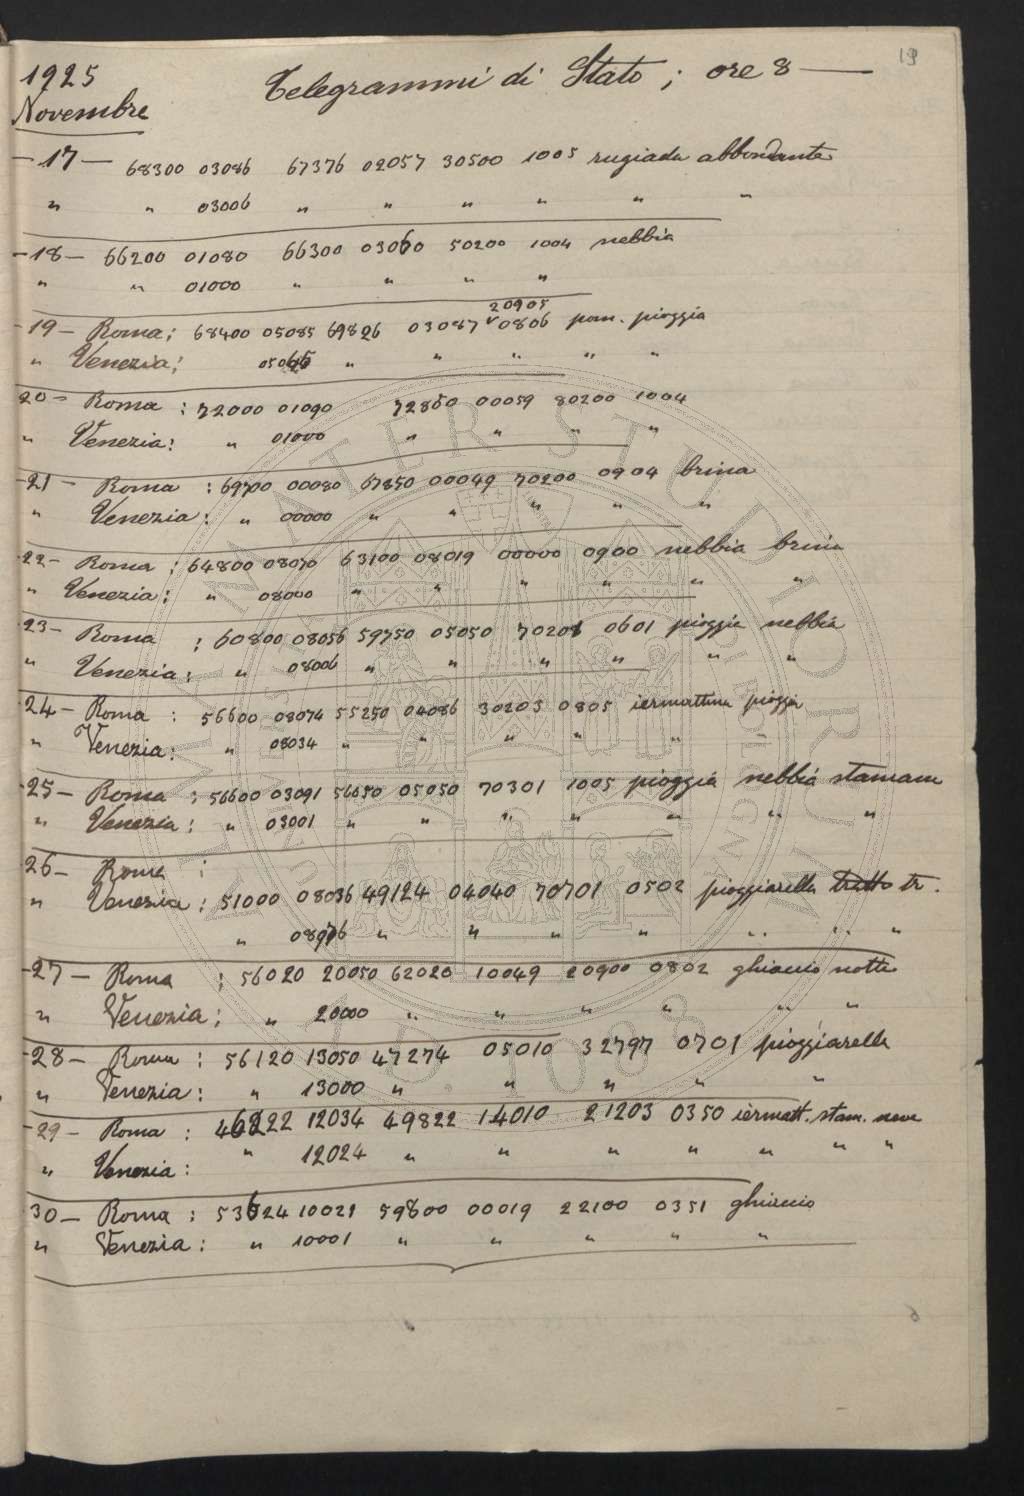 19
1925 Telegrammi di Stato; ore 8 —
Novembre
- 17 - 68300 03086 67376 02057 30500 1005 rugiada abbondante
" " 03006 " " " " " "
- 18 - 66200 01080 66300 03060 50200 1004 nebbia
" " 01000 " " " "
20905
- 19 - Roma; 68400 05085 69826 03087 0806 pom. pioggia
" Venezia; " " " " "
20 - Roma : 72000 01090 72850 00059 80200 1004
" Venezia: " 01000 " " " "
- 21 - Roma : 69700 00080 67850 00049 70200 0904 brina
" Venezia: " 00000 " " " " "
22 - Roma : 64800 08070 63100 08019 00000 0900 nebbia brina
" Venezia: " 08000 " " " " " "
23 - Roma : 60800 08056 59750 05050 70201 0601 pioggia nebbia
" Venezia: " 08006 " " " " " "
24 - Roma : 56600 08074 55250 04086 30203 0805 iermattina pioggia
" Venezia: " 08034 " " " " " "
- 25 - Roma : 56600 03091 56650 05050 70301 1005 pioggia nebbia stamam
" Venezia: " 03001 " " " " " " "
26 - Roma :
" Venezia: 51000 08036 49124 04040 70701 0502 pioggiarella tratto tr.
" " " " " " " "
- 27 - Roma ; 56020 20050 62020 10049 20900 0802 ghiaccio notte
" Venezia; " 20000 " " " " " "
- 28 - Roma : 56120 13050 47274 05010 32797 0701 pioggiarella
" Venezia: " 13000 " " " " "
- 29 - Roma : 12034 49822 14010 21203 0350 iermatt. stam. neve
" Venezia: " 12024 " " " " " " "
30 - Roma : 53624 10021 59800 00019 22100 0351 ghiaccio
" Venezia: " 10001 " " " " "
ALMA MATER STUDIORUM
A.D. 1088